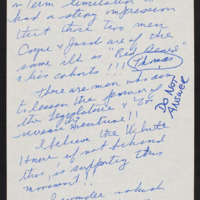 in Term limitation &
had a strong impression
that these two men
Coyne & Good are of the
same ilk as "Red Beard"
& his cohorts !!!
Thomas
There are men who seek
to lessen the power of
the Legislature & to
increase Executive !!
DO NOT
ANSWER
I believe the White
House, if not behind
this, is supporting this
movement !!